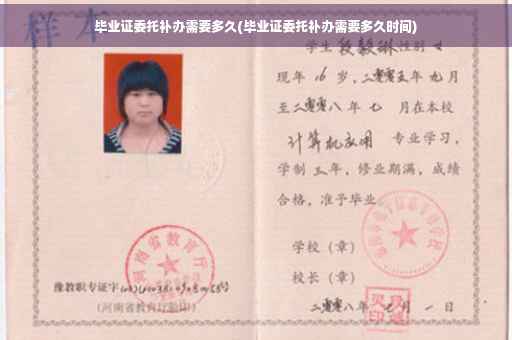 毕业证委托补办需要多久(毕业证委托补办需要多久时间)
样本
学生 段毅琳 性别 女
现年 16 岁，二零零五年 九月
至二零零八年 七 月在本校
计算机应用 专业学习，
学制 三 年，修业期满，成绩
合格，准予毕业
学校（章）
校长（章）
二零零八年 七 月 一 日
河南省教育厅
豫教职专证字
(河南省教育厅验印)